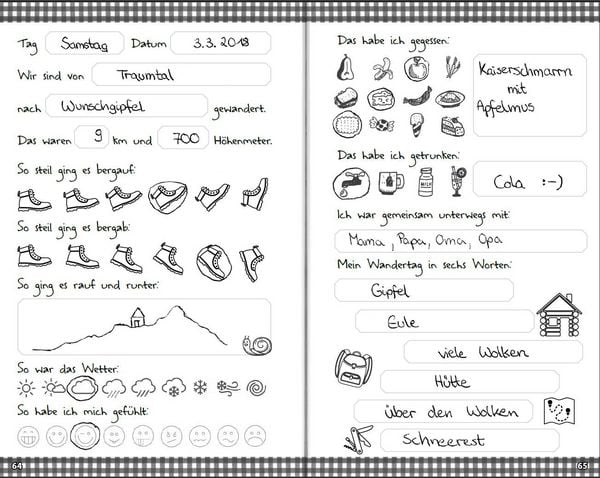 Tag Samstag Datum 3.3.2018
Wir sind von Traumtal
nach Wunschgipfel gewandert.
Das waren 9 km und 700 Höhenmeter.
So steil ging es bergauf:
So steil ging es bergab:
So ging es rauf und runter:
So war das Wetter:
So habe ich mich gefühlt:
64
Das habe ich gegessen:
Kaiserschmarrn
mit
Apfelmus
Das habe ich getrunken:
MILCH
Cola :-)
Ich war gemeinsam unterwegs mit:
Mama, Papa, Oma, Opa
Mein Wandertag in sechs Worten:
Gipfel
Eule
viele Wolken
Hütte
über den Wolken
Schneerest
65